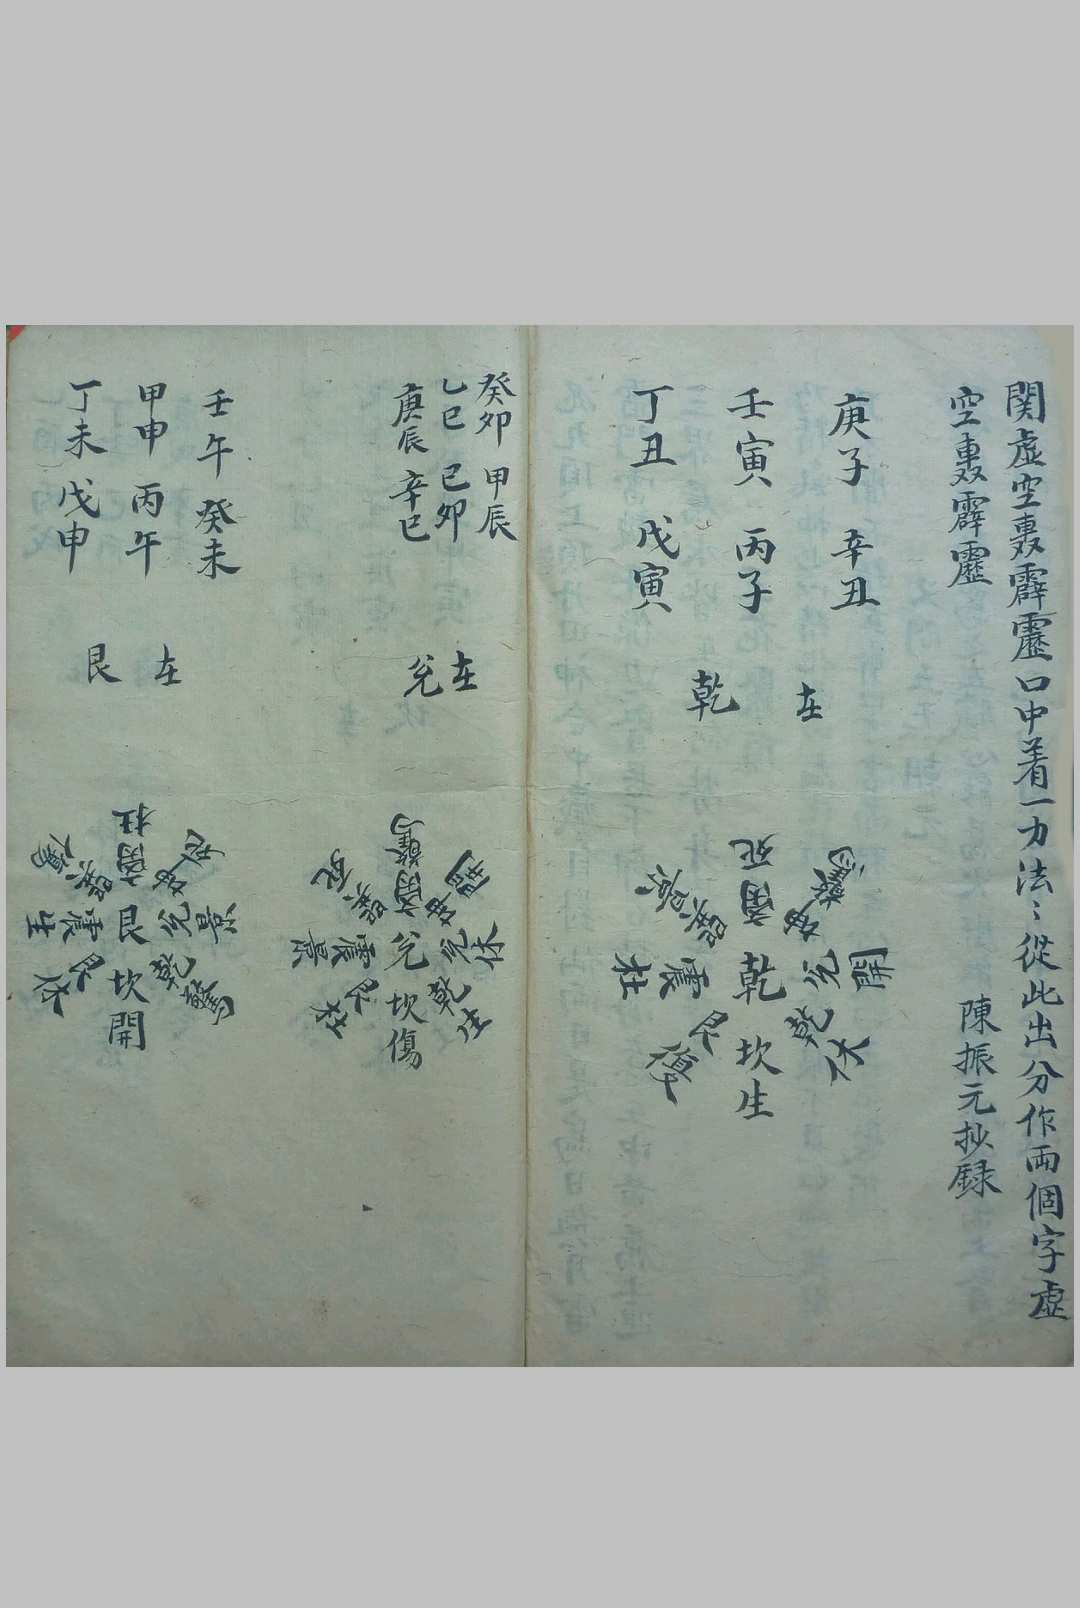 関虛空轟霹靂口中着一力法〻從此出分作兩個字虛
空轟霹靂 陳振元抄録
庚子 辛丑
壬寅 丙子
丁丑 戊寅
在
乾
死
離 坤 驚
景 巽
杜 震 乾 兌 開
艮 坎 乾 休
生
癸卯 甲辰
乙巳 己卯
庚辰 辛巳
在
兌
驚
離 坤 開
死 巽
景 震 兌 兌 休
杜 艮 坎 乾 生
傷
壬午 癸未
甲申 丙午
丁未 戊申
在
艮
杜
離 坤 死
傷 巽
生 震 艮 兌 景
休 艮 坎 乾 驚
開